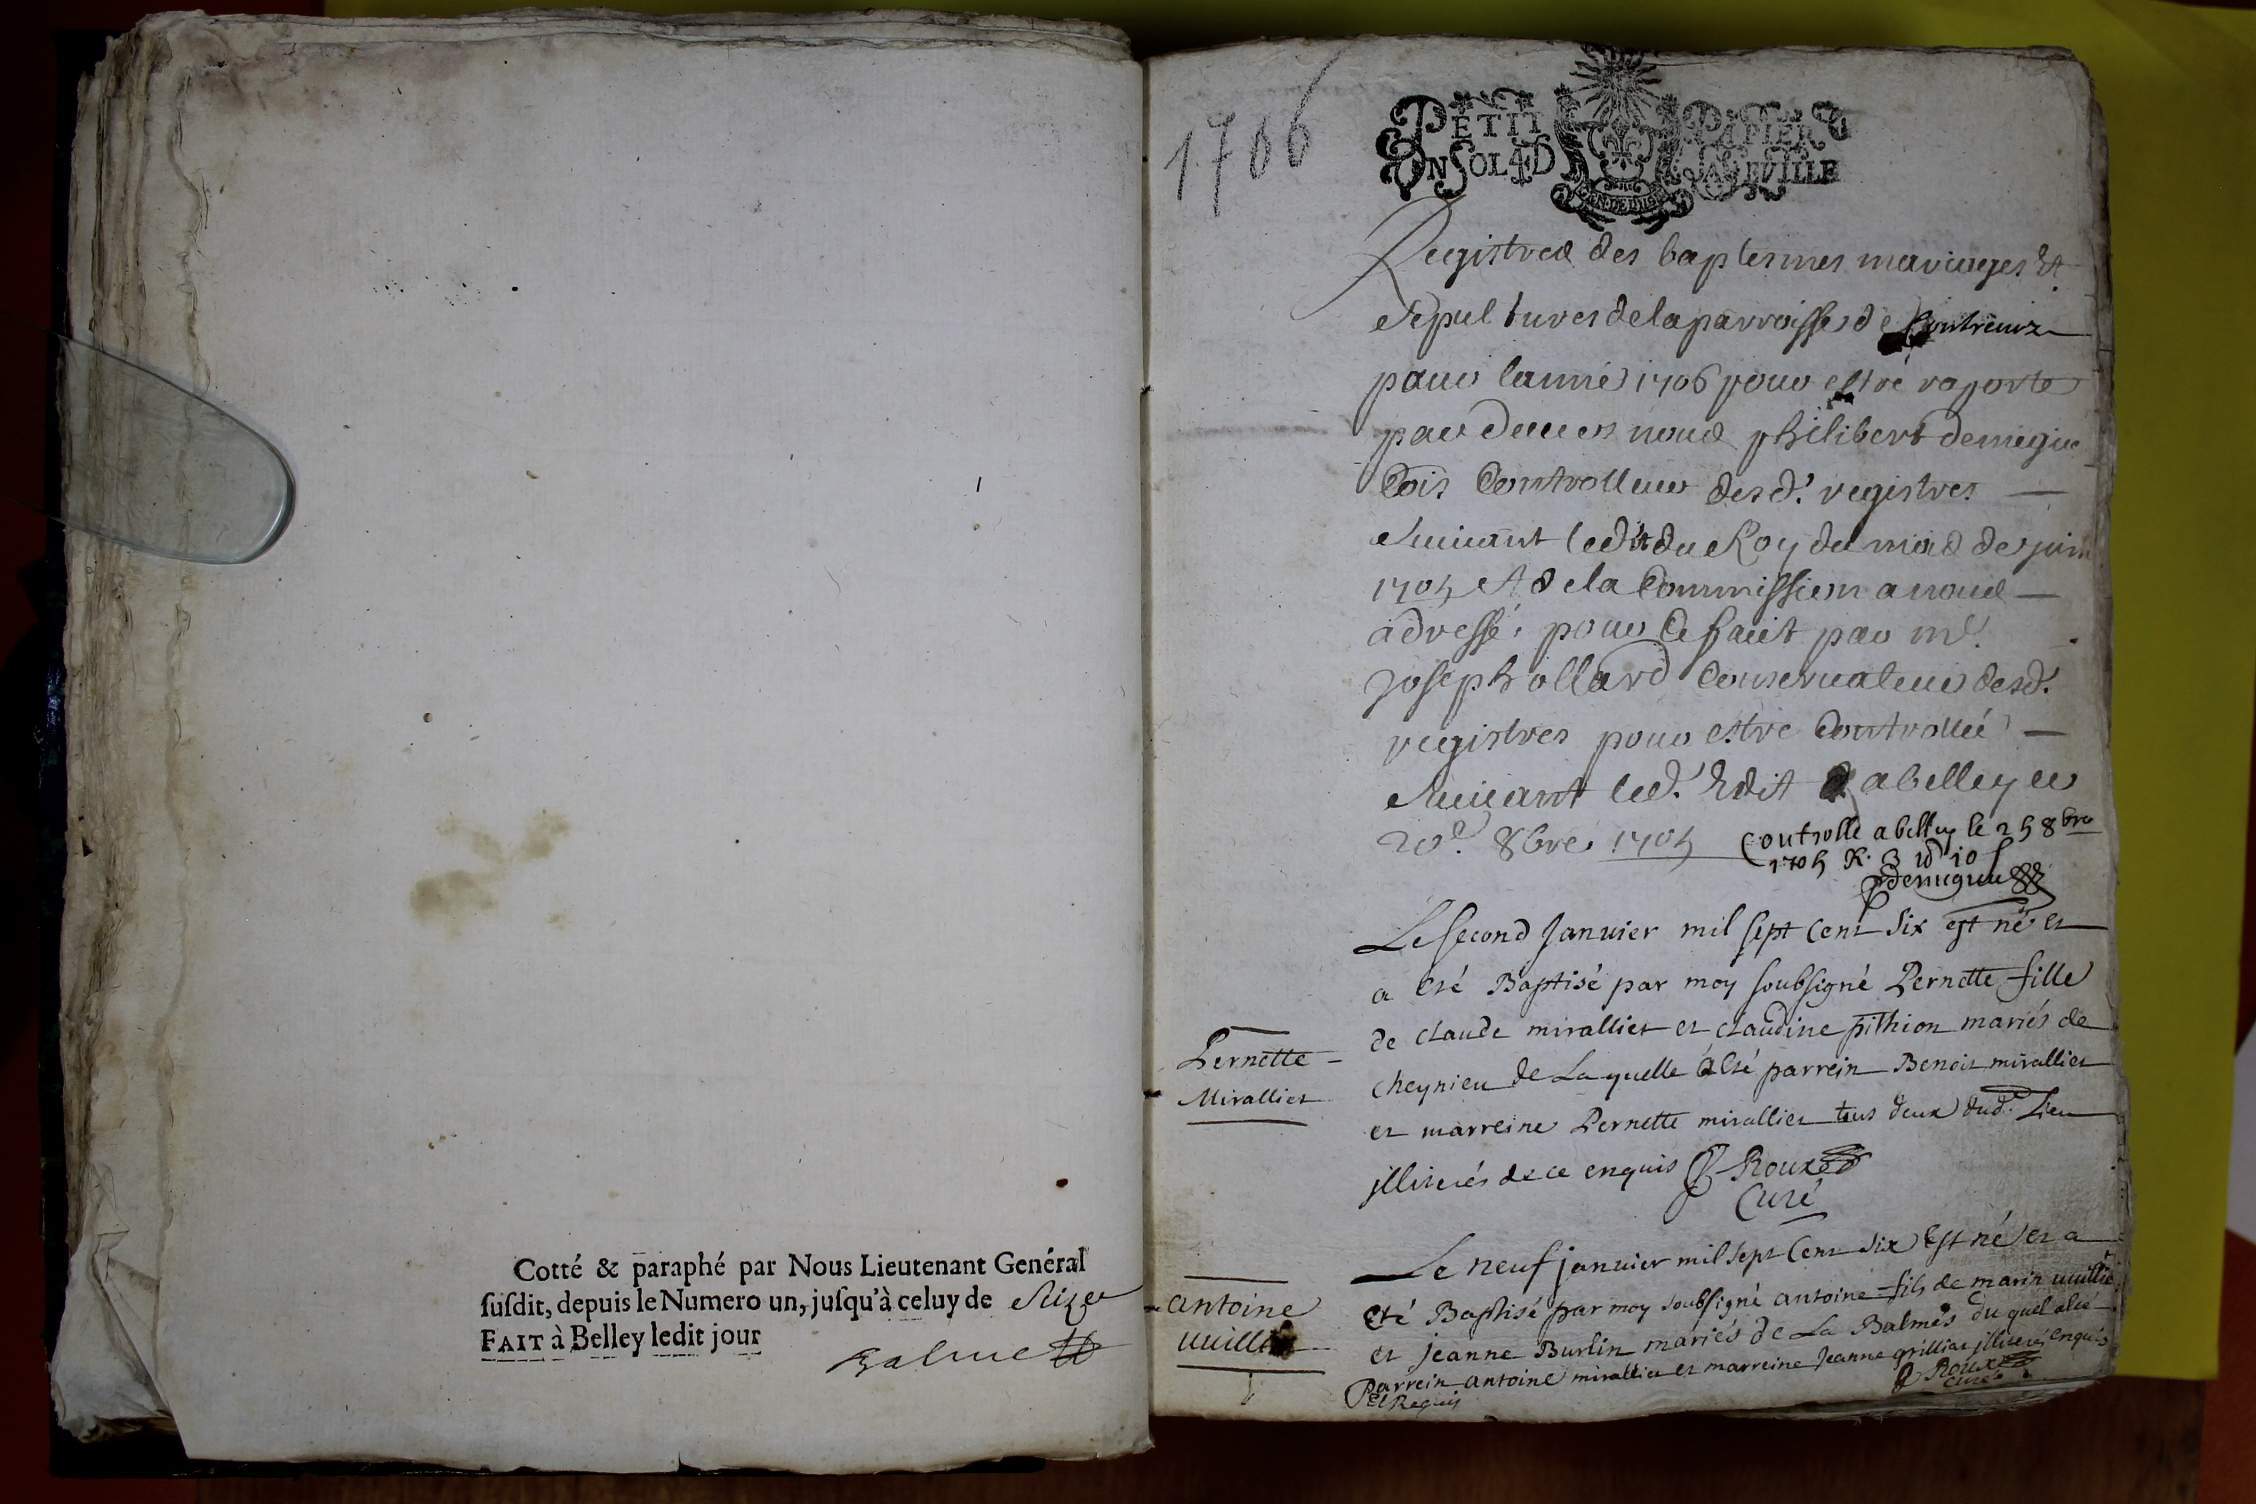 Cotté & paraphé par Nous Lieutenant Genéral
susdit, depuis le Numero un, jusqu'à celuy de Seize
FAIT à Belley ledit jour
Balme
1706
PETIT PAPIER
UN SOL 4 D LA FEUILLE
GEN. DE DIJON
Registres des baptesmes mariages et
sepultures de la parroisse de Contrevoz
pour lanné 1706 pour estre raporté
par devers nous philibert demigieu
Commis Controlleur desd. registres
suivant ledit du Roy du mois de juin
1705 et de la Commission a nous
adressé, pour ce fait par me.
joseph ollard Conservateur desd.
registres pour estre Controllé
suivant led. Edit a belley ce
20e. 8bre 1705 Controllé a belley le 25 8bre
1705 R. 3 10
demigieu
Le second Janvier mil sept cent six est né et
a eté Baptisé par moy soubsigné Pernette fille
de claude mirallier et claudine pithion mariés de
Pernette
Mirallier
cheynieu de Laquelle a eté parrein Benoit mirallier
et marreine Pernette mirallier tous deux dud. Lieu
jlliterés de ce enquis J Roux
Curé
Le neuf janvier mil sept Cent six Est né et a
Antoine
vuillié
eté Baptisé par moy soubsigné antoine fils de marin vuillié
et jeanne Burlin mariés de La Balmes du quel a eté
Parrein antoine mirallier et marreine Jeanne grilliat jlliterés enquis
et Requis
J Roux
curé